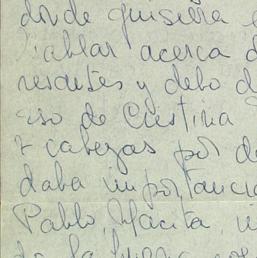 donde quisiera
hablar acerca d
resantes y debo d
aso de Cristina
7 cabezas por de
daba importancia
Pablo, Macita,
de la